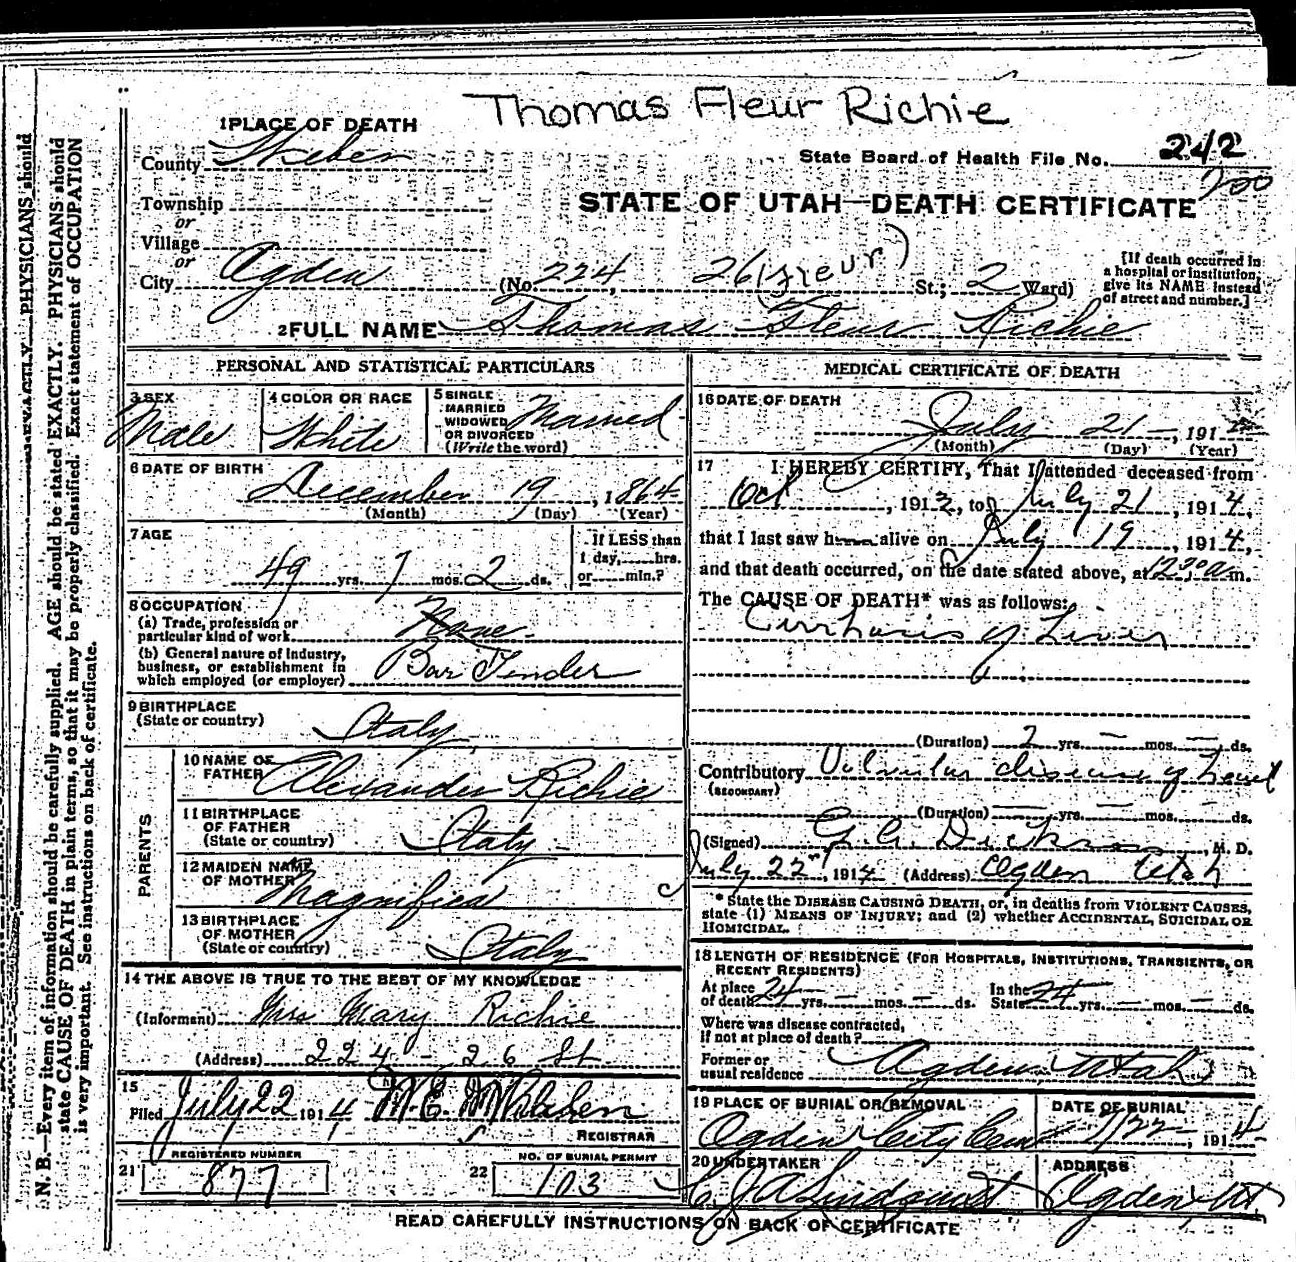 Thomas Fleur Richie
1 PLACE OF DEATH
County Weber
State Board of Health File No. 242
200
Township
or
Village
or
City Ogden
STATE OF UTAH—DEATH CERTIFICATE
(No. 224, 26 (Fleur) St.; 2 Ward)
[If death occurred in a hospital or institution, give its NAME instead of street and number.]
2 FULL NAME Thomas Fleur Richie
PERSONAL AND STATISTICAL PARTICULARS
3 SEX
Male
4 COLOR OR RACE
White
5 SINGLE
MARRIED
WIDOWED
OR DIVORCED
(Write the word)
Married
6 DATE OF BIRTH
December 19, 1864
(Month) (Day) (Year)
7 AGE
49 yrs. 7 mos. 2 ds.
If LESS than
1 day, hrs.
or min.?
8 OCCUPATION
(a) Trade, profession or
particular kind of work None
(b) General nature of industry,
business, or establishment in
which employed (or employer) Bar Tender
9 BIRTHPLACE
(State or country)
Italy
PARENTS
10 NAME OF
FATHER Alexander Richie
11 BIRTHPLACE
OF FATHER
(State or country) Italy
12 MAIDEN NAME
OF MOTHER Magnifica
13 BIRTHPLACE
OF MOTHER
(State or country) Italy
14 THE ABOVE IS TRUE TO THE BEST OF MY KNOWLEDGE
(Informant) Mrs Mary Richie
(Address) 224 - 26 St
15
Filed July 22 1914
REGISTRAR
REGISTERED NUMBER
21 877
NO. OF BURIAL PERMIT
22 103
MEDICAL CERTIFICATE OF DEATH
16 DATE OF DEATH
July 21, 191
(Month) (Day) (Year)
17 I HEREBY CERTIFY, That I attended deceased from
Oct, 1913, to July 21, 1914,
that I last saw h alive on July 19, 1914,
and that death occurred, on the date stated above, at 1230 a m.
The CAUSE OF DEATH* was as follows:
Cirrhosis of Liver
(Duration) 2 yrs. — mos. — ds.
Contributory Valvular disease of heart
(SECONDARY)
(Duration) — yrs. — mos. — ds.
(Signed) G. A. Dickson, M. D.
July 22, 1914 (Address) Ogden Utah
* State the DISEASE CAUSING DEATH, or, in deaths from VIOLENT CAUSES, state (1) MEANS OF INJURY; and (2) whether ACCIDENTAL, SUICIDAL OR HOMICIDAL.
18 LENGTH OF RESIDENCE (FOR HOSPITALS, INSTITUTIONS, TRANSIENTS, OR RECENT RESIDENTS)
At place
of death 24 yrs. — mos. — ds.
In the
State 24 yrs. — mos. — ds.
Where was disease contracted,
if not at place of death?
Former or
usual residence Ogden, Utah
19 PLACE OF BURIAL OR REMOVAL
Ogden City Cem
DATE OF BURIAL
7/22, 1914
20 UNDERTAKER
C J A Lindquist
ADDRESS
Ogden, Ut
READ CAREFULLY INSTRUCTIONS ON BACK OF CERTIFICATE
N. B.—Every item of information should be carefully supplied. AGE should be stated EXACTLY. PHYSICIANS should
state CAUSE OF DEATH in plain terms, so that it may be properly classified. Exact statement of OCCUPATION
is very important. See instructions on back of certificate.
EXACTLY PHYSICIANS should